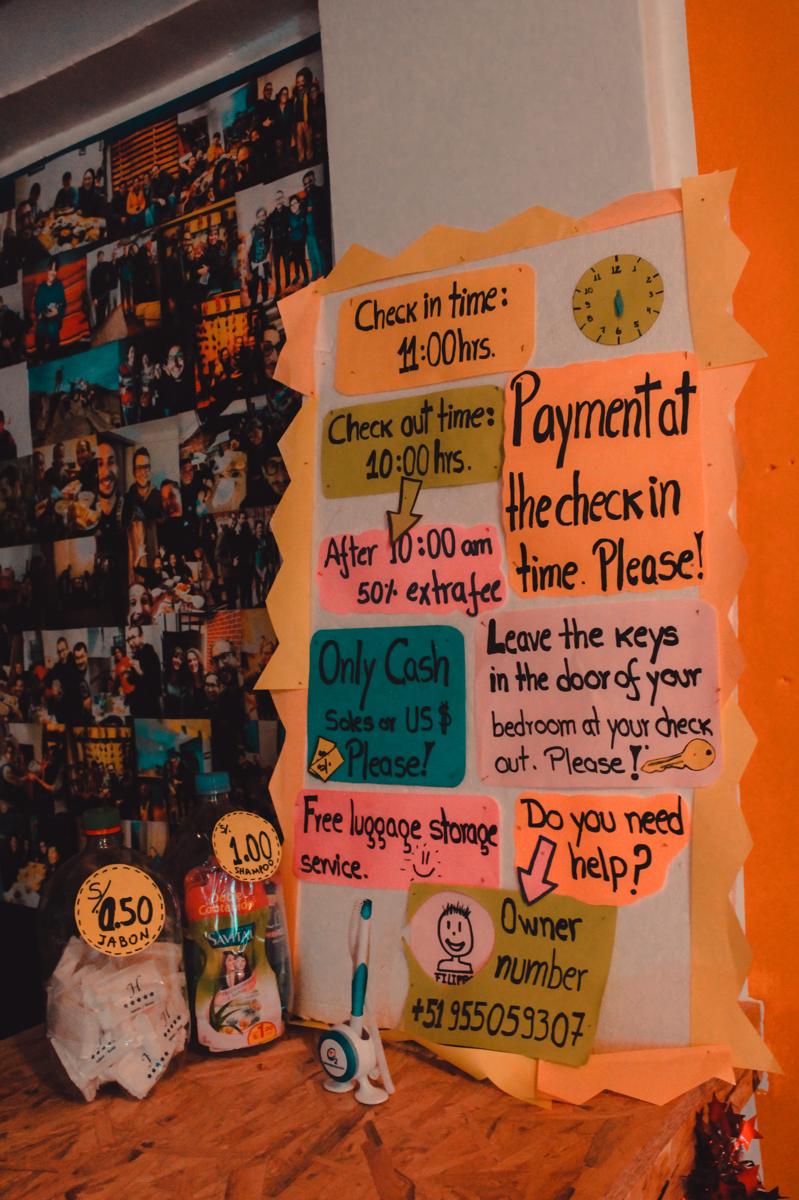 Check in time:
11:00hrs.
12
11
1
10
2
9
3
8
4
7
5
6
Check out time:
10:00 hrs.
After 10:00 am
50% extrafee
Payment at
the check in
time. Please!
Only Cash
Soles or US $
Please!
Leave the keys
in the door of your
bedroom at your check
out. Please!
Free luggage storage
service.
Do you need
help?
FILIPP
Owner
number
+51 955059307
S/.
1.00
SHAMPOO
S/
0.50
JABON
SAVITAL
H